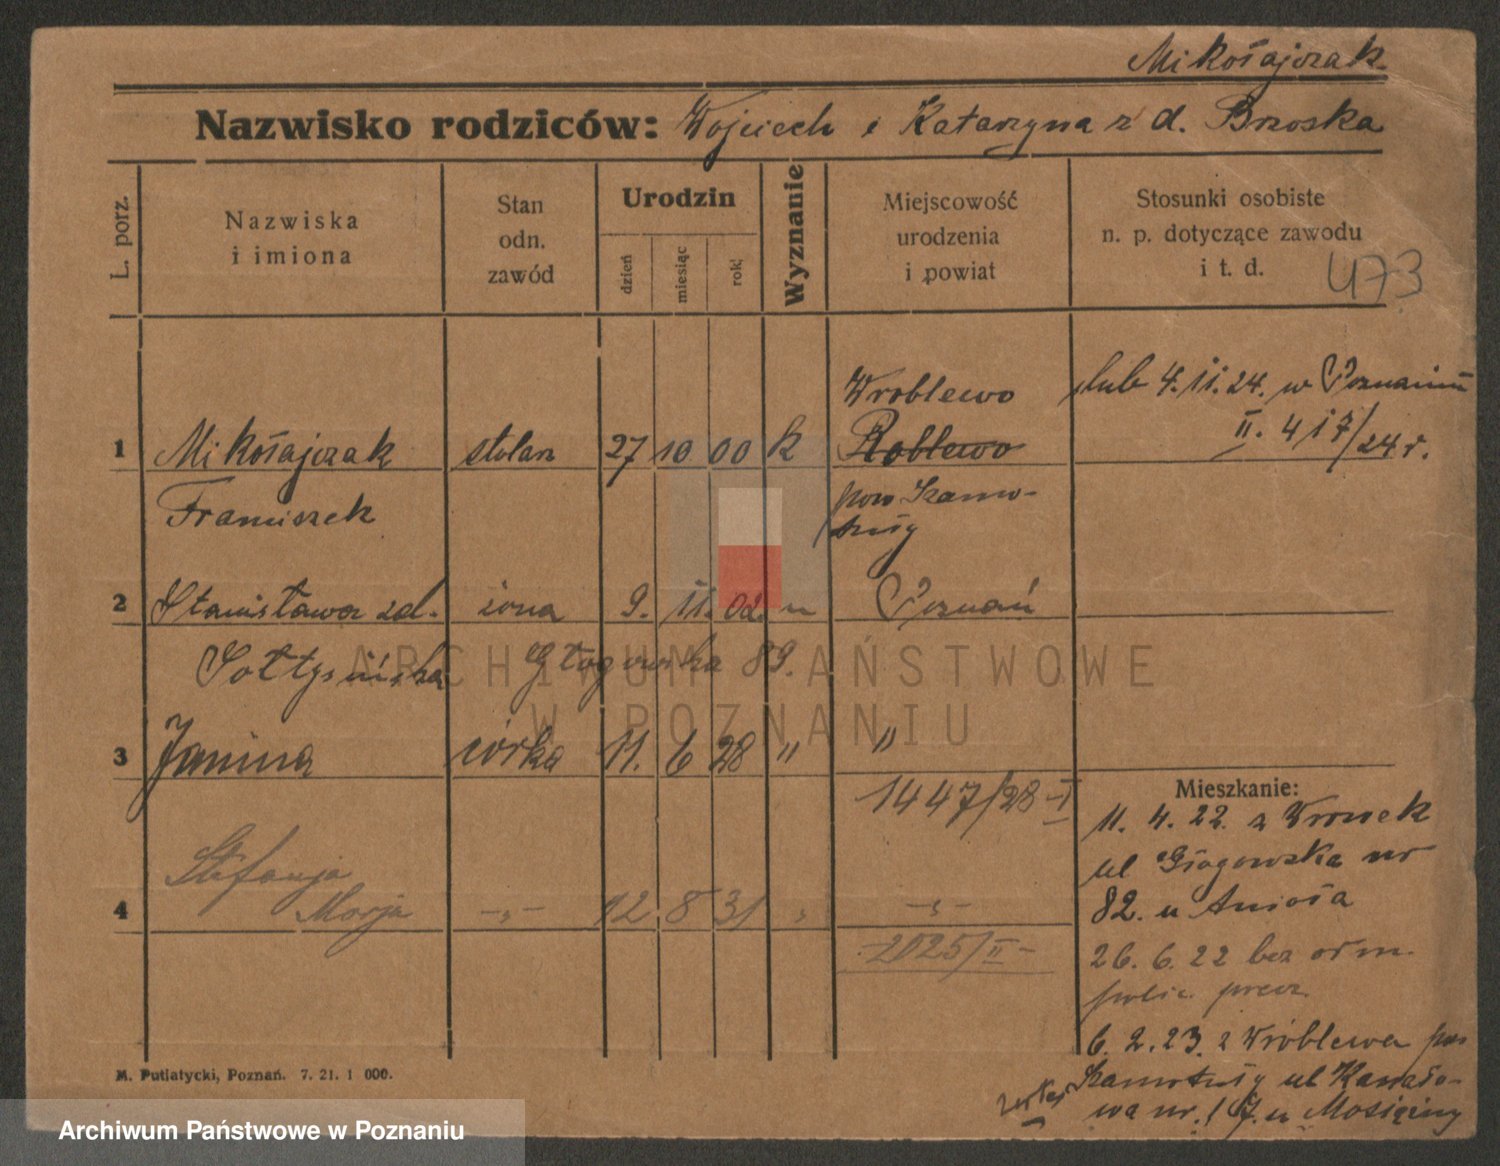 Mikołajczak
Nazwisko rodziców: Wojciech i Katarzyna z d. Brzoska
L. porz.
Nazwiska
i imiona
Stan
odn.
zawód
Urodzin
dzień
miesiąc
rok
Wyznanie
Miejscowość
urodzenia
i powiat
Stosunki osobiste
n. p. dotyczące zawodu
i t. d.
473
Wroblewo
ślub 4.11.24. w Poznaniu
II. 417/24 r.
1 Mikołajczak stolarz 27 10 00 k Roblewo
Franciszek
pow Szamo-
tuły
2 Stanisława zd. żona 9. 11. 02. " Poznań
Sołtysińska Głogowska 89.
ARCHIWUM PAŃSTWOWE
W POZNANIU
3 Janina córka 11. 6 28 " "
1447/28 - I
Stefanja
4 Marja -„- 12 8 31 „ -„-
2025/II -
Mieszkanie:
11. 4. 22 z Wronek
ul Głogowska nr
82. u Anioła
26. 6. 22 bez
polic.
6. 2. 23. z Wróblewa pow
Szamotuły ul Kanało-
wa nr. 17. u
M. Putiatycki, Poznań. 7. 21. 1 000.
Archiwum Państwowe w Poznaniu